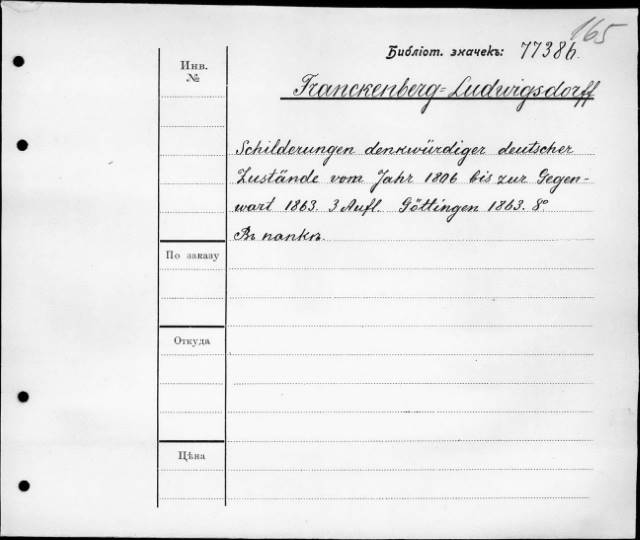 165
Библіот. значекъ: 77386.
Инв.
№
Franckenberg=Ludwigsdorff
Schilderungen denkwürdiger deutscher
Zustände vom Jahr 1806 bis zur Gegen-
wart 1863. 3 Aufl. Göttingen 1863. 8°
Въ папкѣ.
По заказу
Откуда
Цѣна